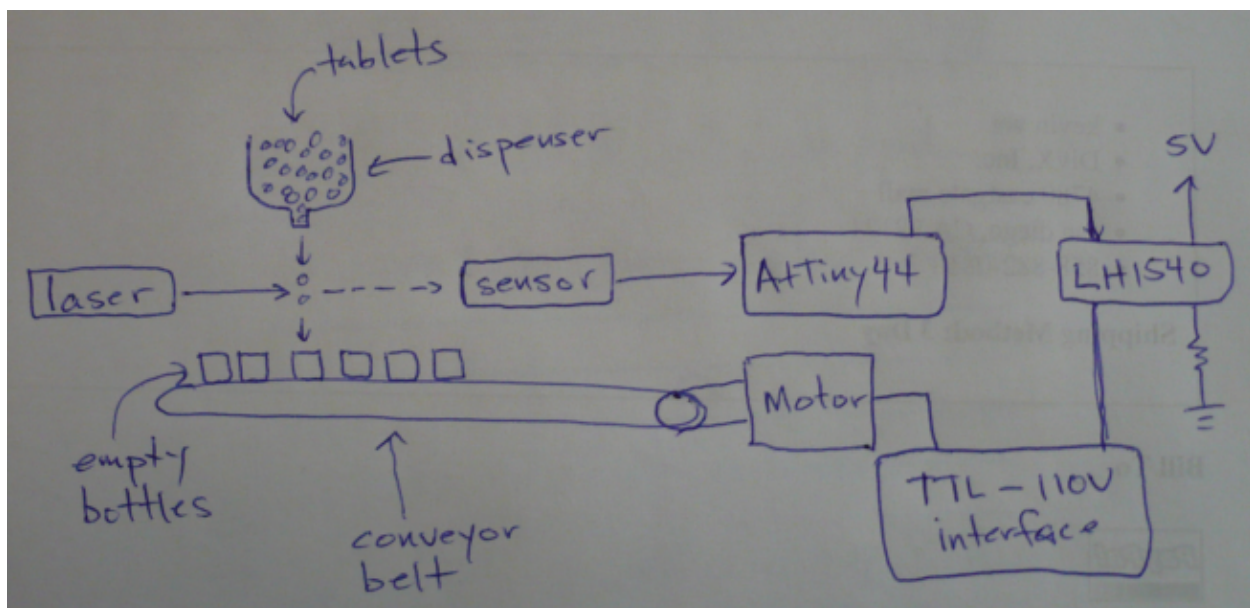 tablets
dispenser
5V
laser
sensor
AtTiny44
LH1540
Shipping Method: 3 Day
Motor
empty
bottles
conveyor
belt
TTL - 110V
interface